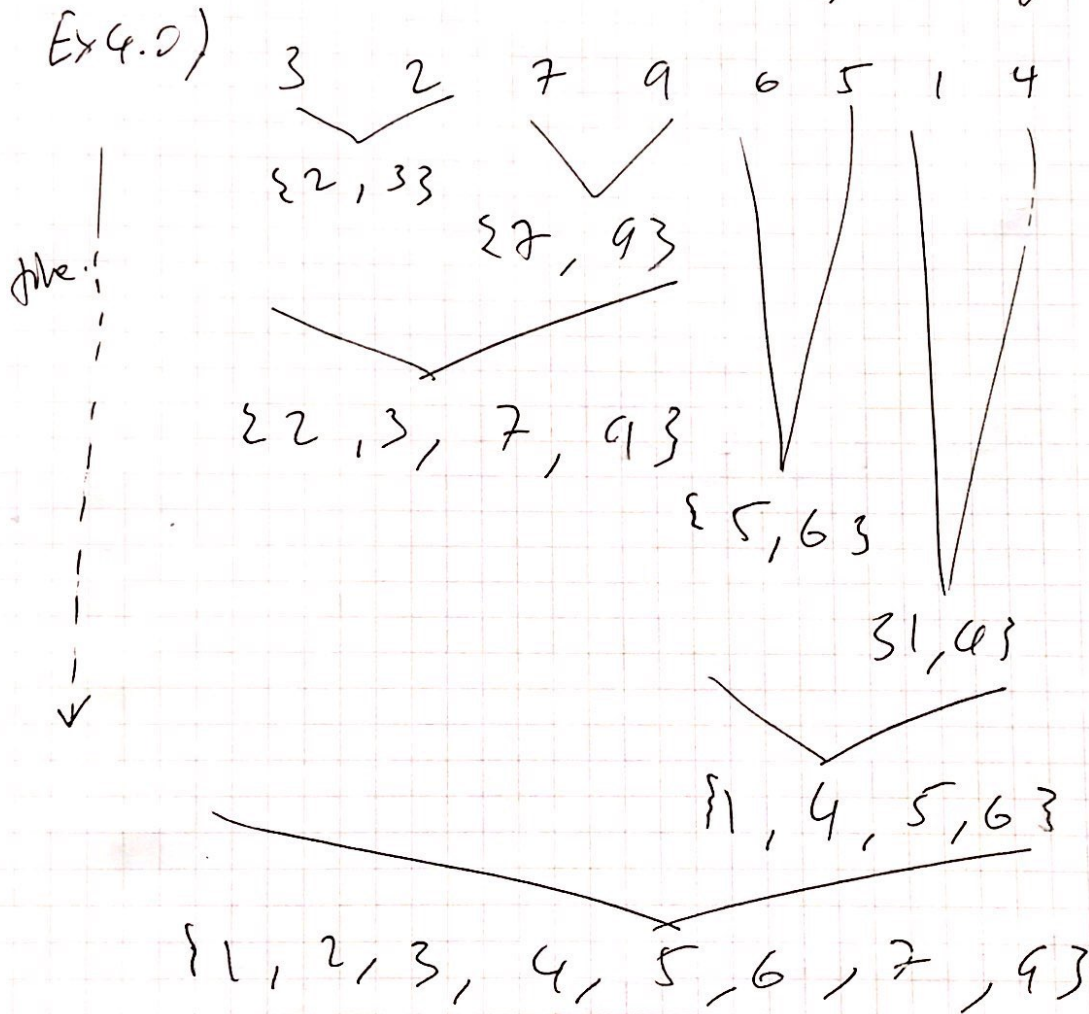 Ex4.0)
3 2 7 9 6 5 1 4
{2, 3}
{7, 9}
{2, 3, 7, 9}
{5, 6}
{1, 4}
{1, 4, 5, 6}
{1, 2, 3, 4, 5, 6, 7, 9}